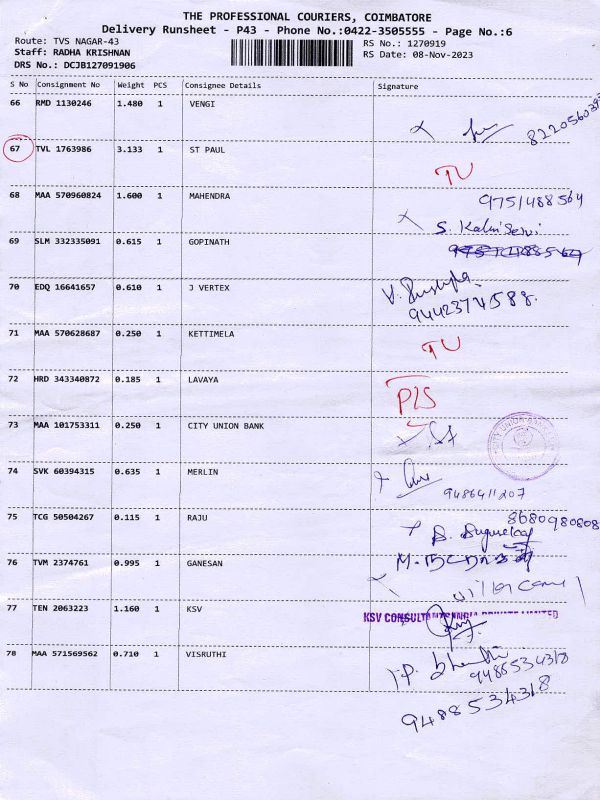 THE PROFESSIONAL COURIERS, COIMBATORE
Delivery Runsheet - P43 - Phone No.:0422-3505555 - Page No.:6
Route: TVS NAGAR-43 RS No.: 1270919
Staff: RADHA KRISHNAN RS Date: 08-Nov-2023
DRS No.: DCJB127091906
S No Consignment No Weight PCS Consignee Details Signature
66 RMD 1130246 1.480 1 VENGI
67 TVL 1763986 3.133 1 ST PAUL TU
68 MAA 570960824 1.600 1 MAHENDRA 9751488564
69 SLM 332335091 0.615 1 GOPINATH
70 EDQ 16641657 0.610 1 J VERTEX
71 MAA 570628687 0.250 1 KETTIMELA TU
72 HRD 343340872 0.185 1 LAVAYA P/S
73 MAA 101753311 0.250 1 CITY UNION BANK
74 SVK 60394315 0.635 1 MERLIN
75 TCG 50504267 0.115 1 RAJU 8680980808
76 TVM 2374761 0.995 1 GANESAN
77 TEN 2063223 1.160 1 KSV
78 MAA 571569562 0.710 1 VISRUTHI
9488534318